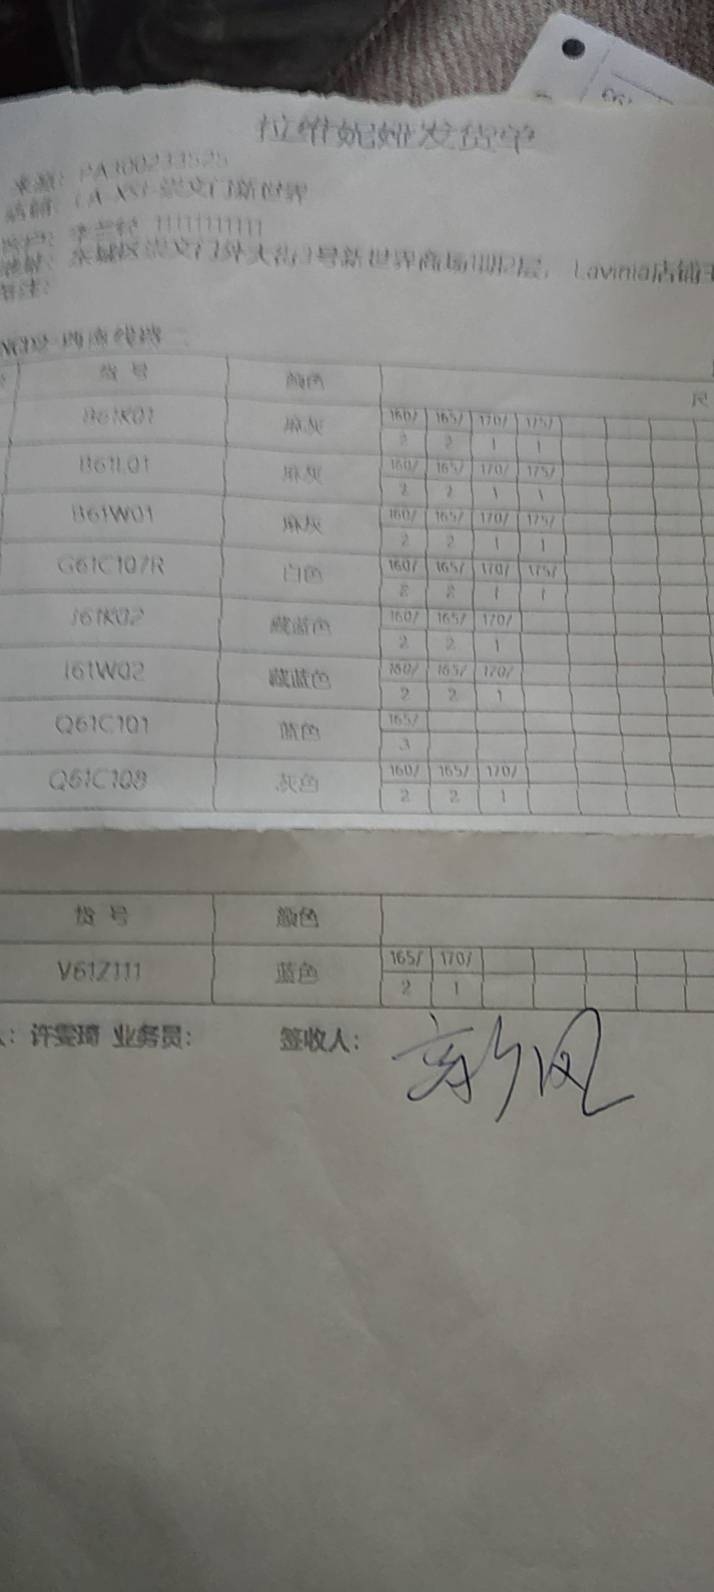 拉维妮娅发货单
来源: PA100233525
店铺: 崇文门新世界
11111111111
地址: 东城区崇文门外大街3号新世界商场1期2层, Lavinia店铺
备注:
货 号 颜色 尺
B61K01 麻灰 160/ 165/ 170/ 175/
2 2 1 1
B61L01 麻灰 160/ 165/ 170/ 175/
2 2 1 1
B61W01 麻灰 160/ 165/ 170/ 175/
2 2 1 1
G61C107R 白色 160/ 165/ 170/ 175/
2 2 1 1
J61K02 藏蓝色 160/ 165/ 170/
2 2 1
J61W02 藏蓝色 160/ 165/ 170/
2 2 1
Q61C101 蓝色 165/
3
Q61C108 灰色 160/ 165/ 170/
2 2 1
货 号 颜色
V61Z111 蓝色 165/ 170/
2 1
: 许雯琦 业务员: 签收人: